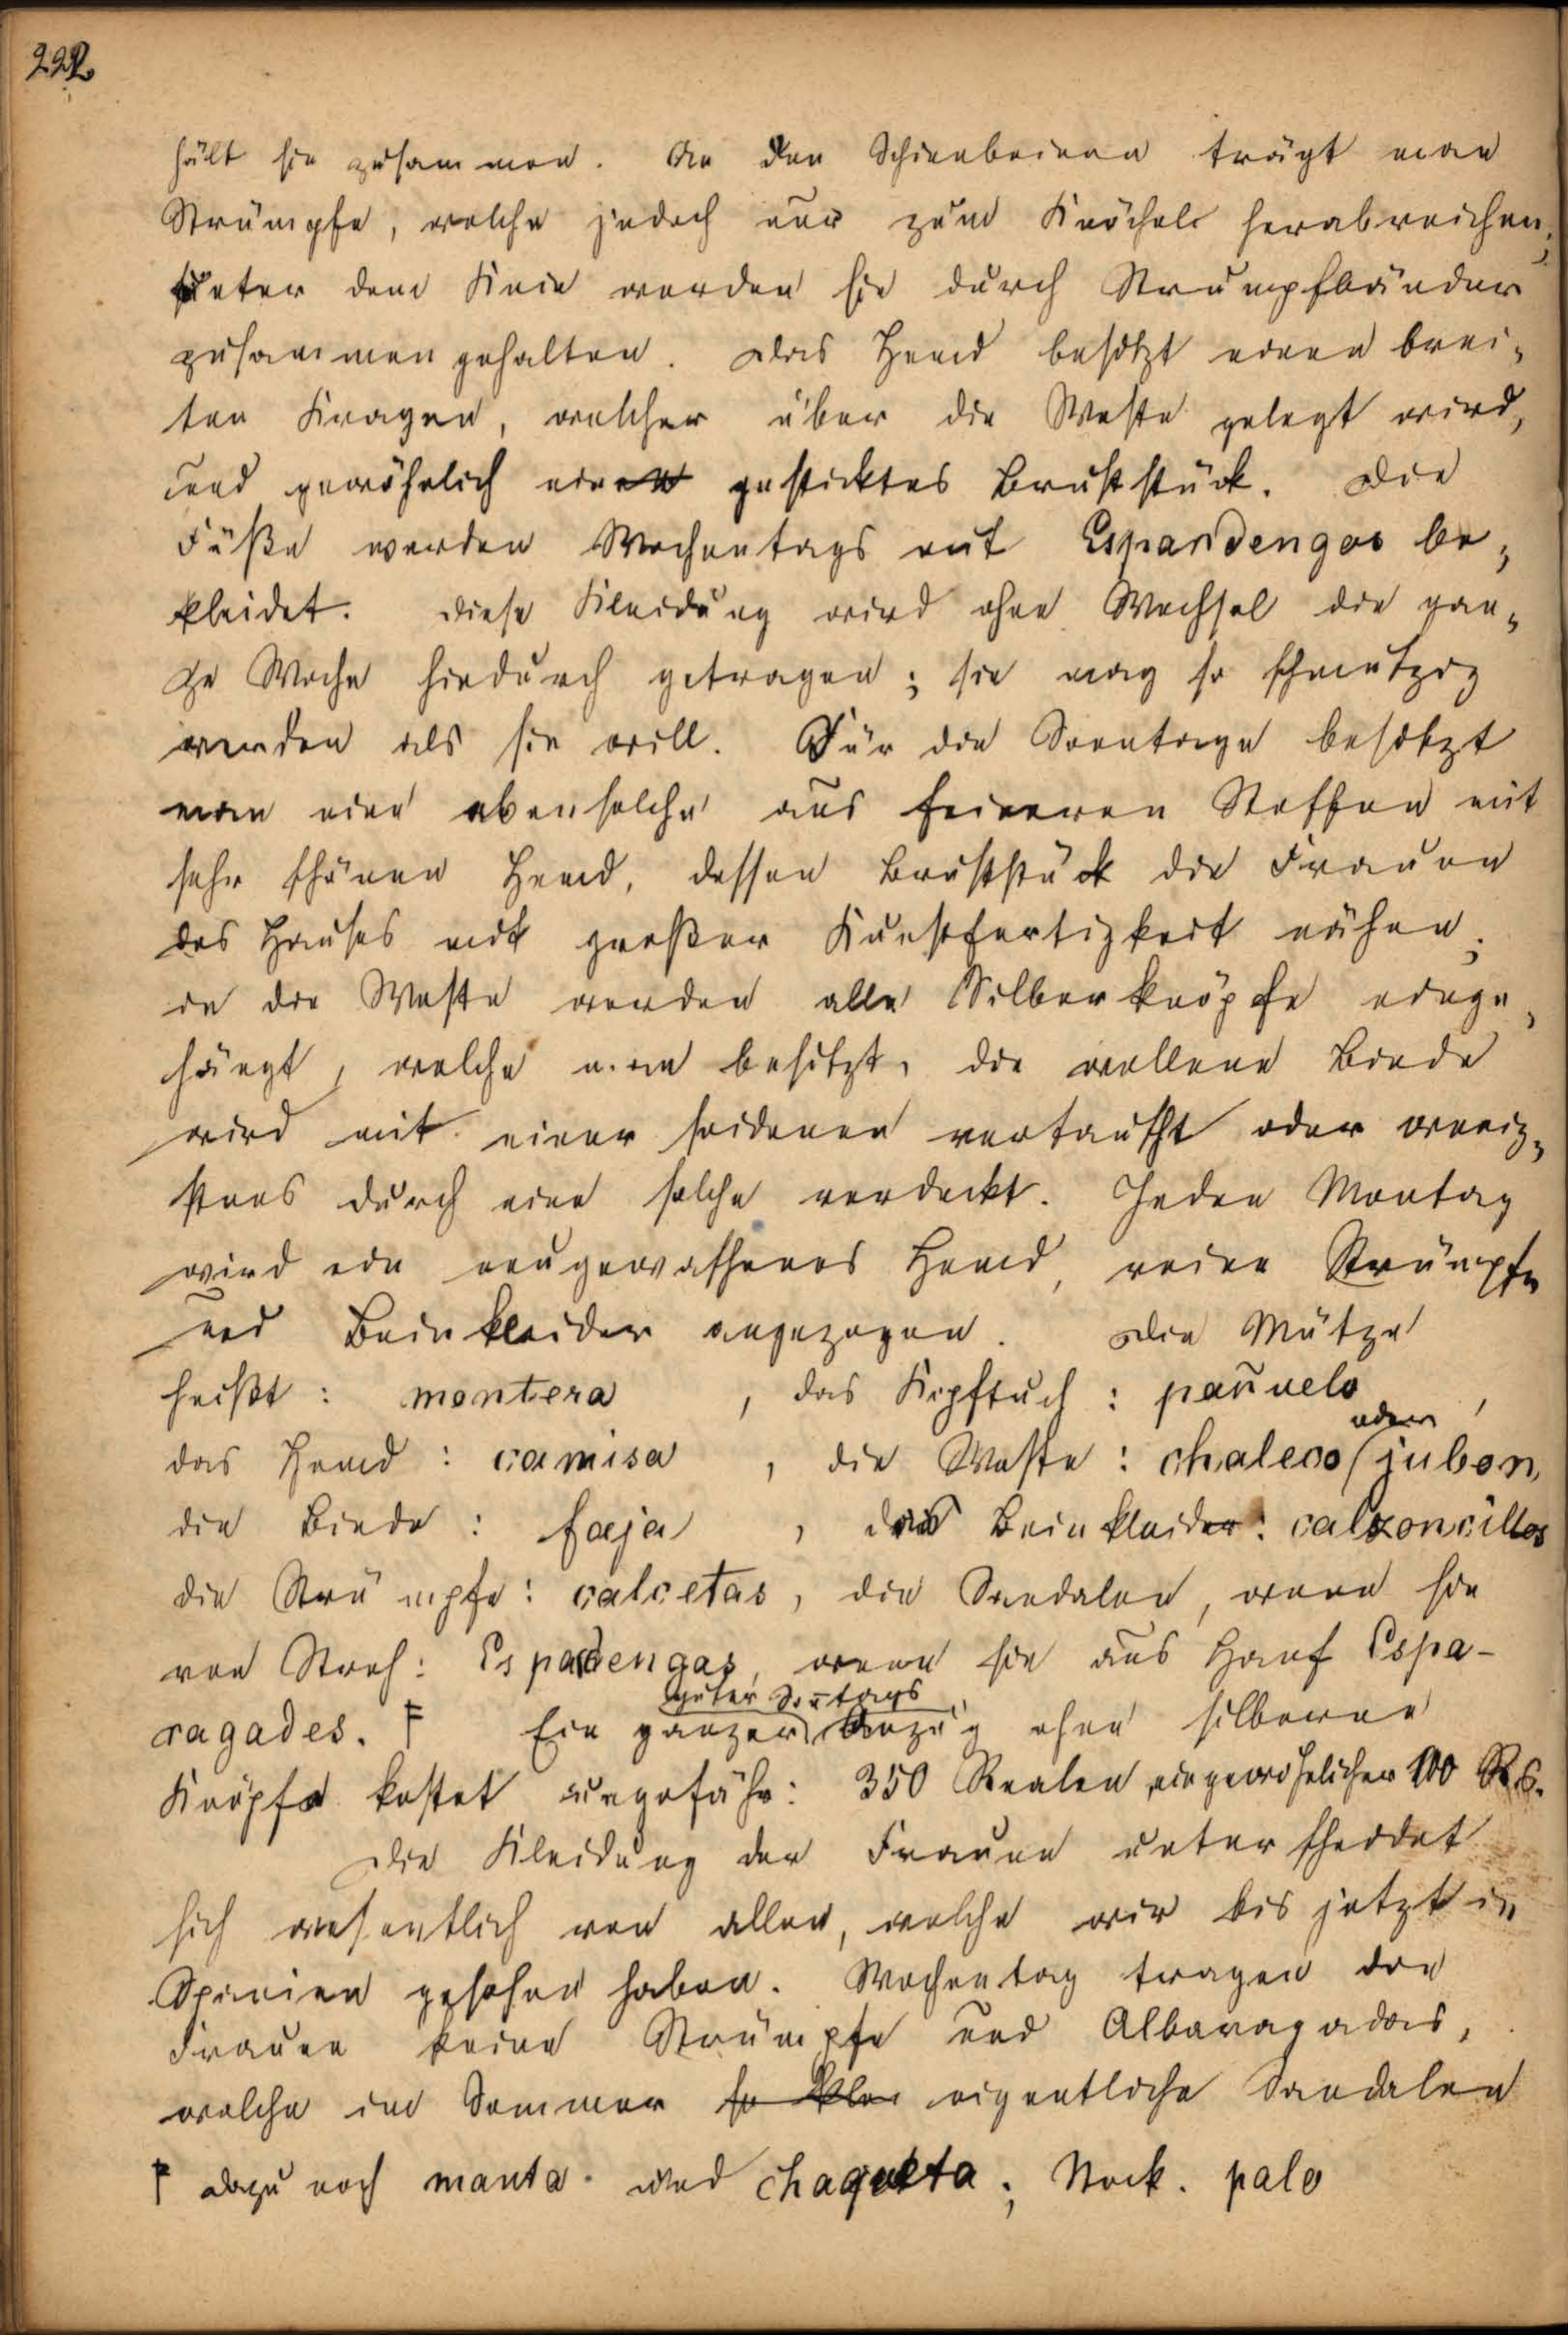 222
hält sie zusammen. An den Schienbeinen trägt man
Strümpfe, welche jedoch nur zum Knöchel herabreichen;
unter dem Knie werden sie durch Strumpfbänder
zusammengehalten. Das Hemd besitzt einen brei-
ten Kragen, welcher über die Weste gelegt wird,
und gewöhnlich ein gesticktes Bruststück. Die
Füße werden Wochentags mit Espardengas be-
kleidet. Diese Kleidung wird ohne Wechsel die gan-
ze Woche hindurch getragen; sie mag so schmutzig
werden als sie will. Für die Sonntage besitzt
man eine ebensolche aus feineren Stoffen mit
sehr schönen Hemd, dessen Bruststück die Frauen
des Hauses mit großer Kunstfertigkeit nähen;
in die Weste werden alle Silberknöpfe einge-
hängt, welche man besitzt, die wollene Binde
wird mit einer seidenen vertauscht oder wenig-
stens durch eine solche verdeckt. Jeden Montag
wird ein neugewaschenes Hemd, reine Strümpfe
und Beinkleider angezogen. Die Mütze
heißt: montera, das Kopftuch: pañuelo,
das Hemd: camisa, die Weste: chaleco oder jubon,
die Binde: faja, das Beinkleid: calzoncillos
die Strümpfe: calcetas, die Sandalen, wenn sie
von Stroh: Espardengas, wenn sie aus Hanf Espa-
ragades. F Ein ganzer guter Sontags Anzug ohne silberne
Knöpfe kostet ungefähr: 350 Realen, ein gewöhnlicher 100 Rs.
Die Kleidung der Frauen unterscheidet
sich wesentlich von allen, welche wir bis jetzt in
Spanien gesehen haben. Wochentag tragen die
Frauen keine Strümpfe und Albaragadas,
welche im Sommer eigentliche Sandalen
F dazu noch manta und chaqueta; Stock. palo